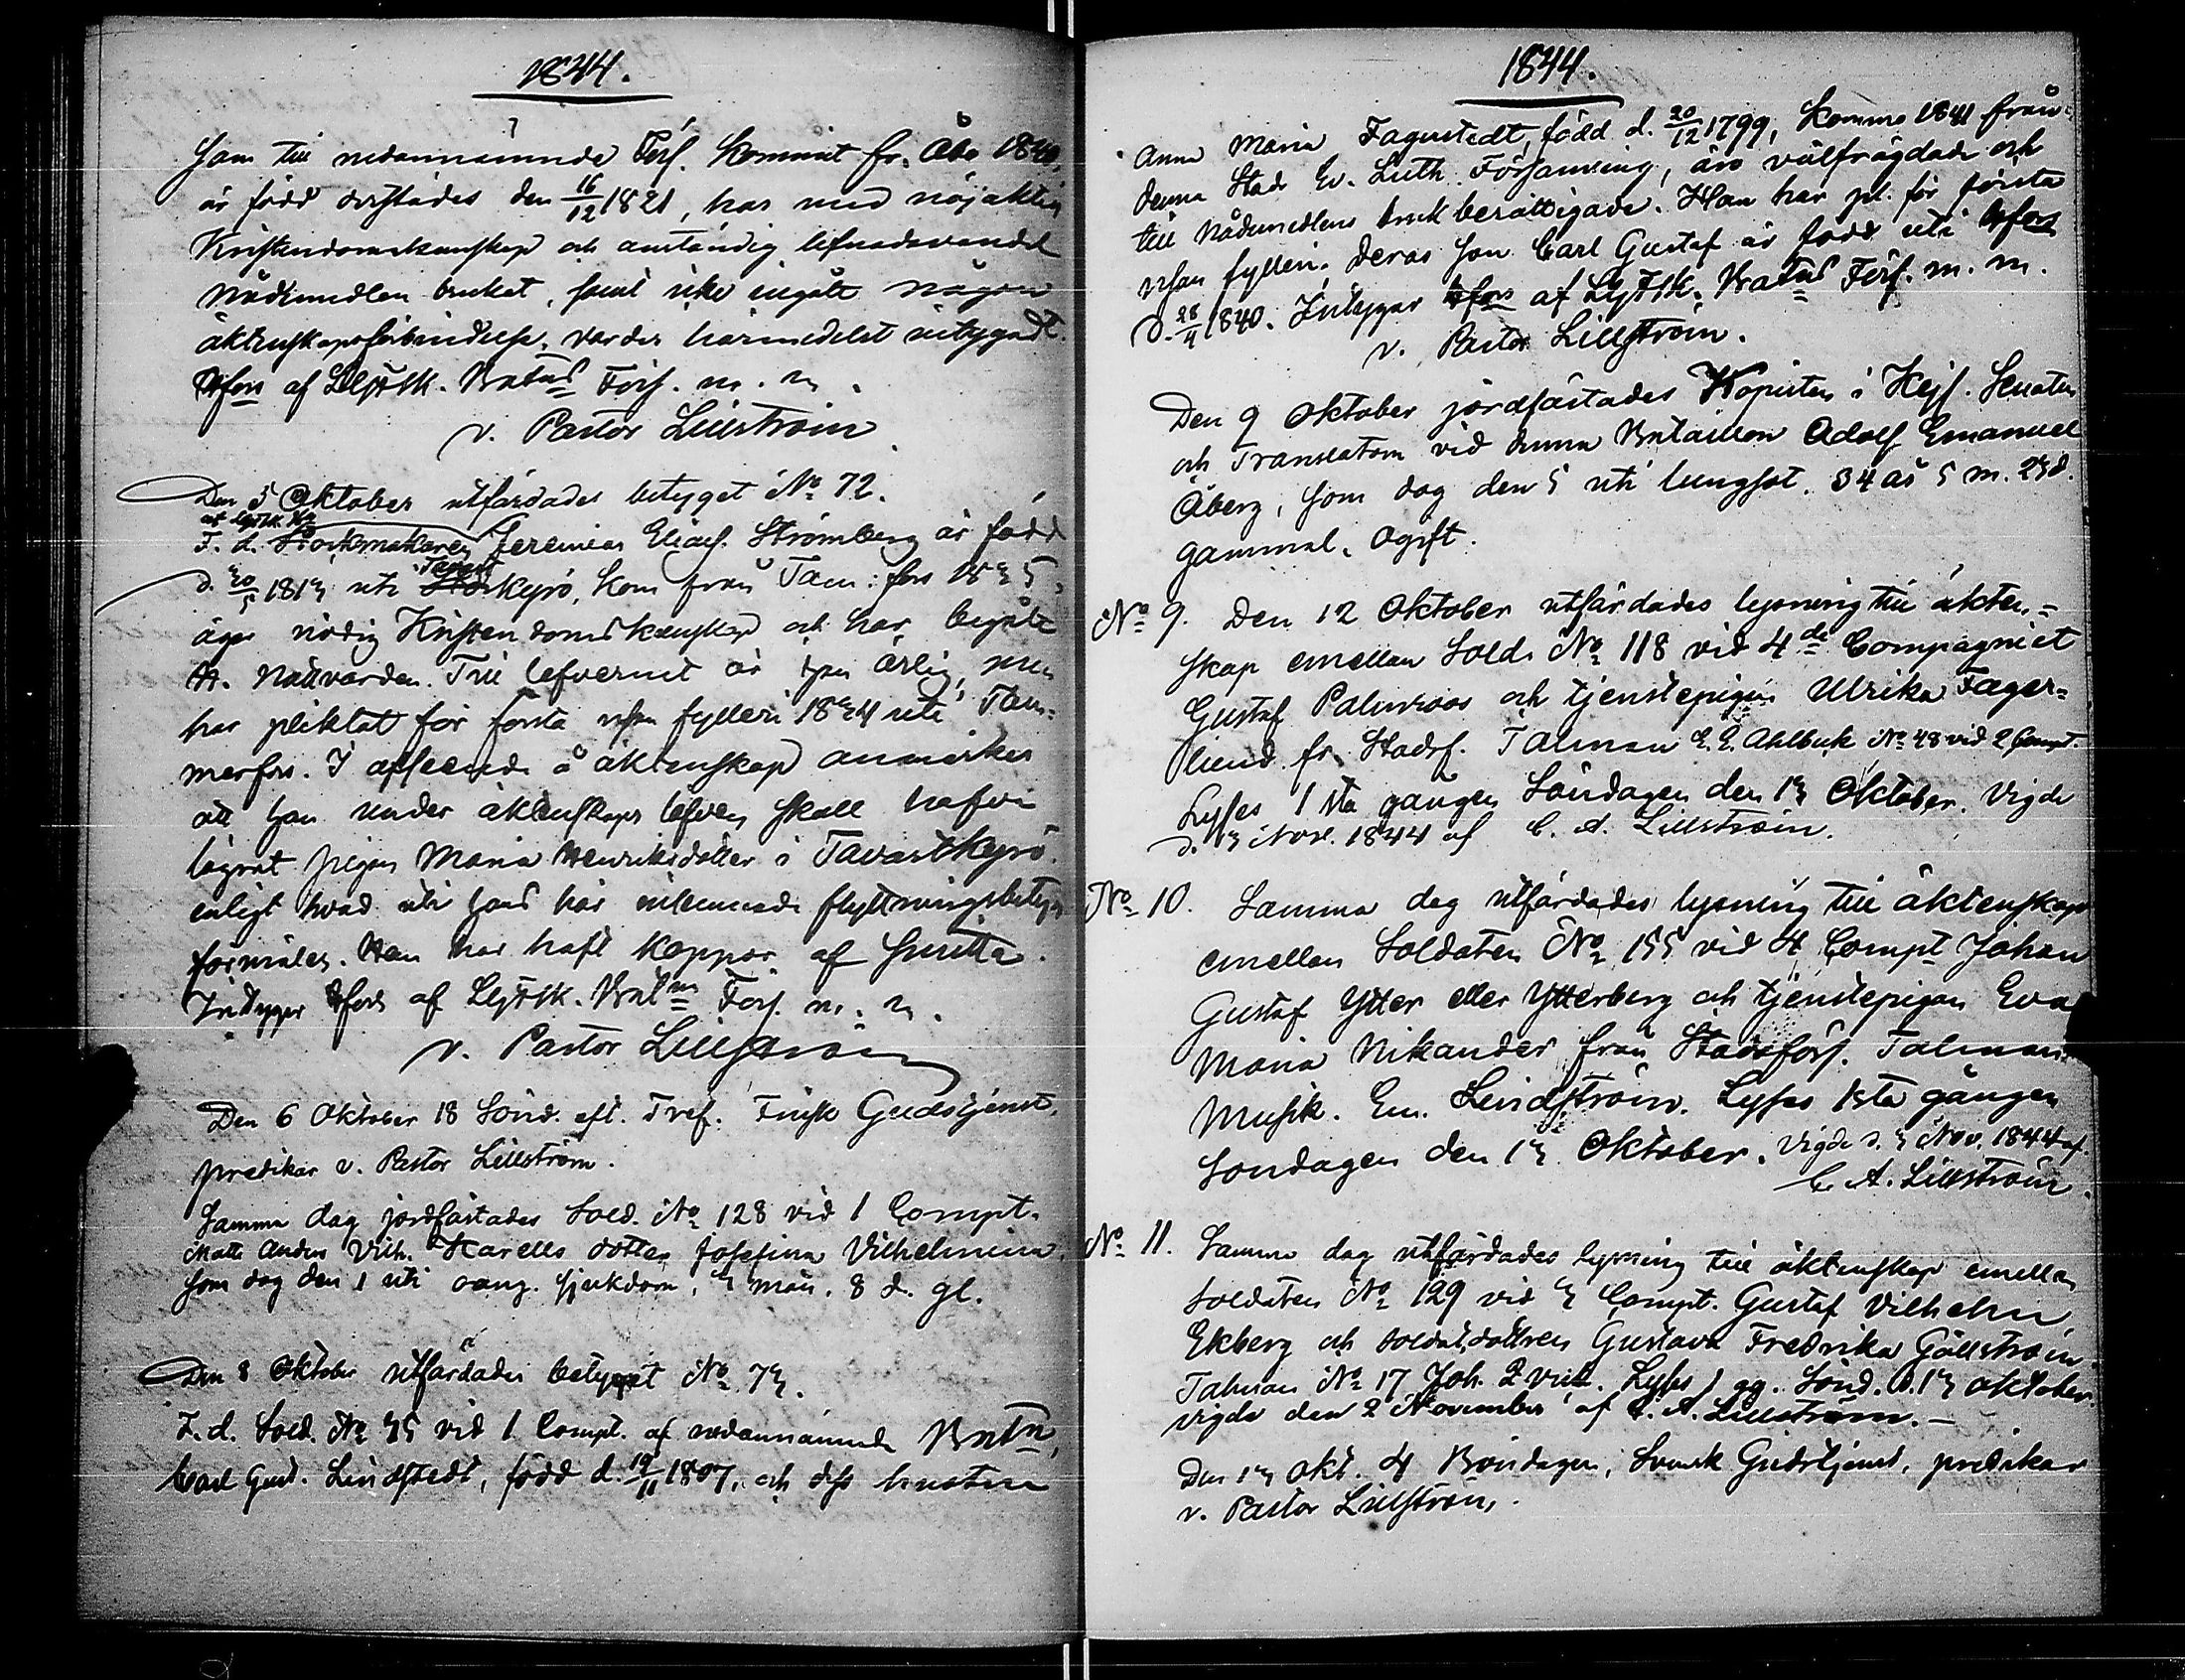 1844.
som till nedannämnde Förs. kommit fr. Åbo 1840,
är född derstädes den 16/12 1821, har med nöjaktig
Kristendomskunskap och anständig lefnadsvandel
Nådemedlen brukat, samt icke ingått någon
äktenskapsförbindelse, varder härmedelst intygadt.
Hfors af LgFSk. Batns Förs. m. m.
v. Pastor Lillström
Den 5 Oktober utfärdades betyget No 72.
F. d. Horkmakaren Jeremias Eliæs. Strömberg är född
d. 20/5 1813 uti Tavast Kyrö, kom från Tam:fors 1835,
äger nödig Kristendomskunskap och har begått
H. Nattvarden. Till lefvernet är han ärlig, men
har pliktat för första resan fylleri 1834 uti Tam-
merfors. I afseende å äktenskap anmärkes
att han under äktenskaps löfven skall hafva
lägrat pigan Maria Henriksdotter i Tavastkyrö.
enligt hvad uti hans här inlemnade flyttningsbetyg
förmäles. Han har haft koppor af smitta.
Intygar Hfors af LgFSk. Batns Förs. m. m.
v. Pastor Lillström
Den 6 Oktober 18 Sönd. eft. Tref. Finsk Gudstjenst,
predikar v. Pastor Lillström.
Samma dag jordfästades Sold. No 128 vid 1 Compt.
Matts Anders Vilh. Harells dotter Josefina Vilhelmina,
som dog den 1 uti oang. sjukdom, 3 mån. 8 d. gl.
Den 8 Oktober utfärdades betyget No 73.
F. d. Sold. No 35 vid 1 Compt. af nedannämnde Batn,
Carl Gust. Lindstedt, född d. 19/11 1807, och dess hustru
1844.
Anna Maria Fagerstedt, född d. 20/12 1799, komna 1841 från
denna Stads Ev. Luth. Församling, äro välfrägdade och
till Nådemedlens bruk berättigade. Han har pl. för första
resan fylleri. Deras son Carl Gustaf är född uti Hfors
d. 28/4 1840. Intygar Hfors af LgFSk. Batns Förs. m. m.
v. Pastor Lillström.
Den 9 Oktober jordfästades Kopisten i Kejs. Senaten
och Translatorn vid denna Bataillon Adolf Emanuel
Åberg, som dog den 5 uti lungsot. 34 år 5 m. 23 d.
gammal. Ogift.
No 9. Den 12 Oktober utfärdades lysning till äkten-
skap emellan Sold. No 118 vid 4de Compagniet
Gustaf Palmroos och tjenstepigan Ulrika Fager-
lund fr. Stadsf. Talman E. E. Ahlbäck No 48 vid 2 Compt.
Lyses 1sta gången Söndagen den 13 Oktober. Vigde
d. 3 Nov. 1844 af C. A. Lillström.
No 10. Samma dag utfärdades lysning till äktenskap
emellan Soldaten No 155 vid 4 Compt Johan
Gustaf Ytter eller Ytterberg och tjenstepigan Eva
Maria Nikander från Stadsförs. Talman
Musik. Em. Lindström. Lyses 1sta gången
Söndagen den 13 Oktober. Vigde d. 3 Nov. 1844 af
C. A. Lillström.
No 11. Samma dag utfärdades lysning till äktenskap emellan
Soldaten No 129 vid 3 Compt. Gustaf Vilhelm
Ekberg och soldatdottren Gustava Fredrika Gällström.
Talman No 17 Joh. Lyses 1 gg. Sönd. d. 13 Oktober.
Vigde den 2 November af C. A. Lillström.
Den 13 Okt. 4 Böndagen, Svensk Gudstjenst, predikar
v. Pastor Lillström.